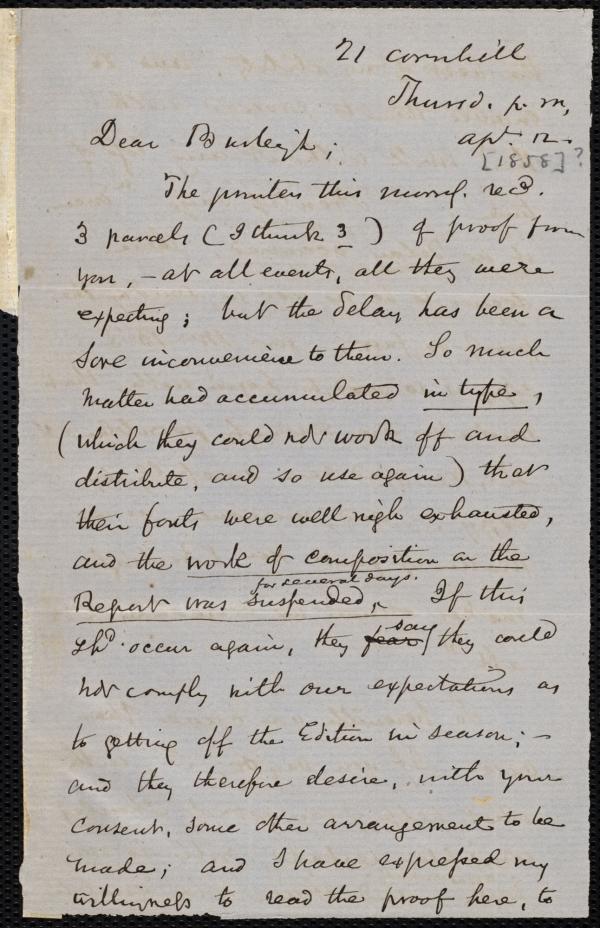 21 Cornhill
Thursd. p. m,
Apl. 12.
[1858]?
Dear Burleigh;
The printers this morng. recd.
3 parcels (I think 3) of proof from
you, – at all events, all they were
expecting; but the delay has been a
sore inconvenience to them. So much
matter had accumulated in type,
(which they could not work off and
distribute, and so use again) that
their fonts were well nigh exhausted,
and the work of composition on the
for several days.
Report was suspended,^ If this
say
shd. occur again, they fear they could
not comply with our expectations as
to getting off the Edition in season; –
and they therefore desire, with your
consent, some other arrangement to be
made; and I have expressed my
willingness to read the proof here, to